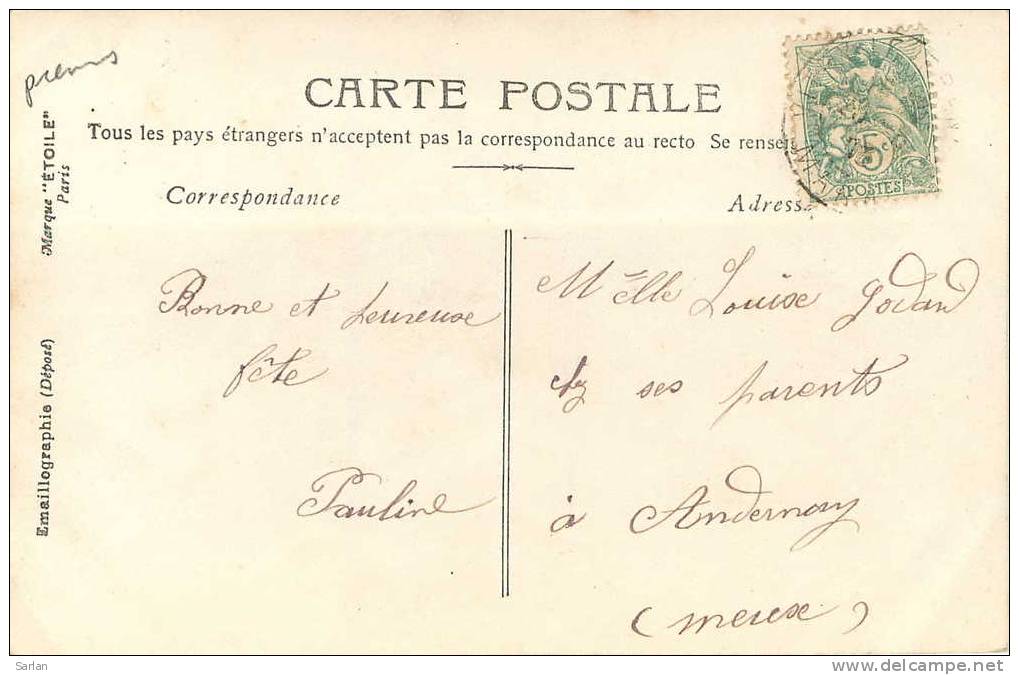 prems
CARTE POSTALE
Tous les pays étrangers n'acceptent pas la correspondance au recto Se renseig
Correspondance
Adresse
Marque "ÉTOILE"
Paris
Emaillographie (Déposé)
5c
POSTES
Bonne et heureuse
fête
Pauline
Melle Louise Godard
chz ses parents
à Andernay
(meuse)
Sarlan
http://www.delcampe.net